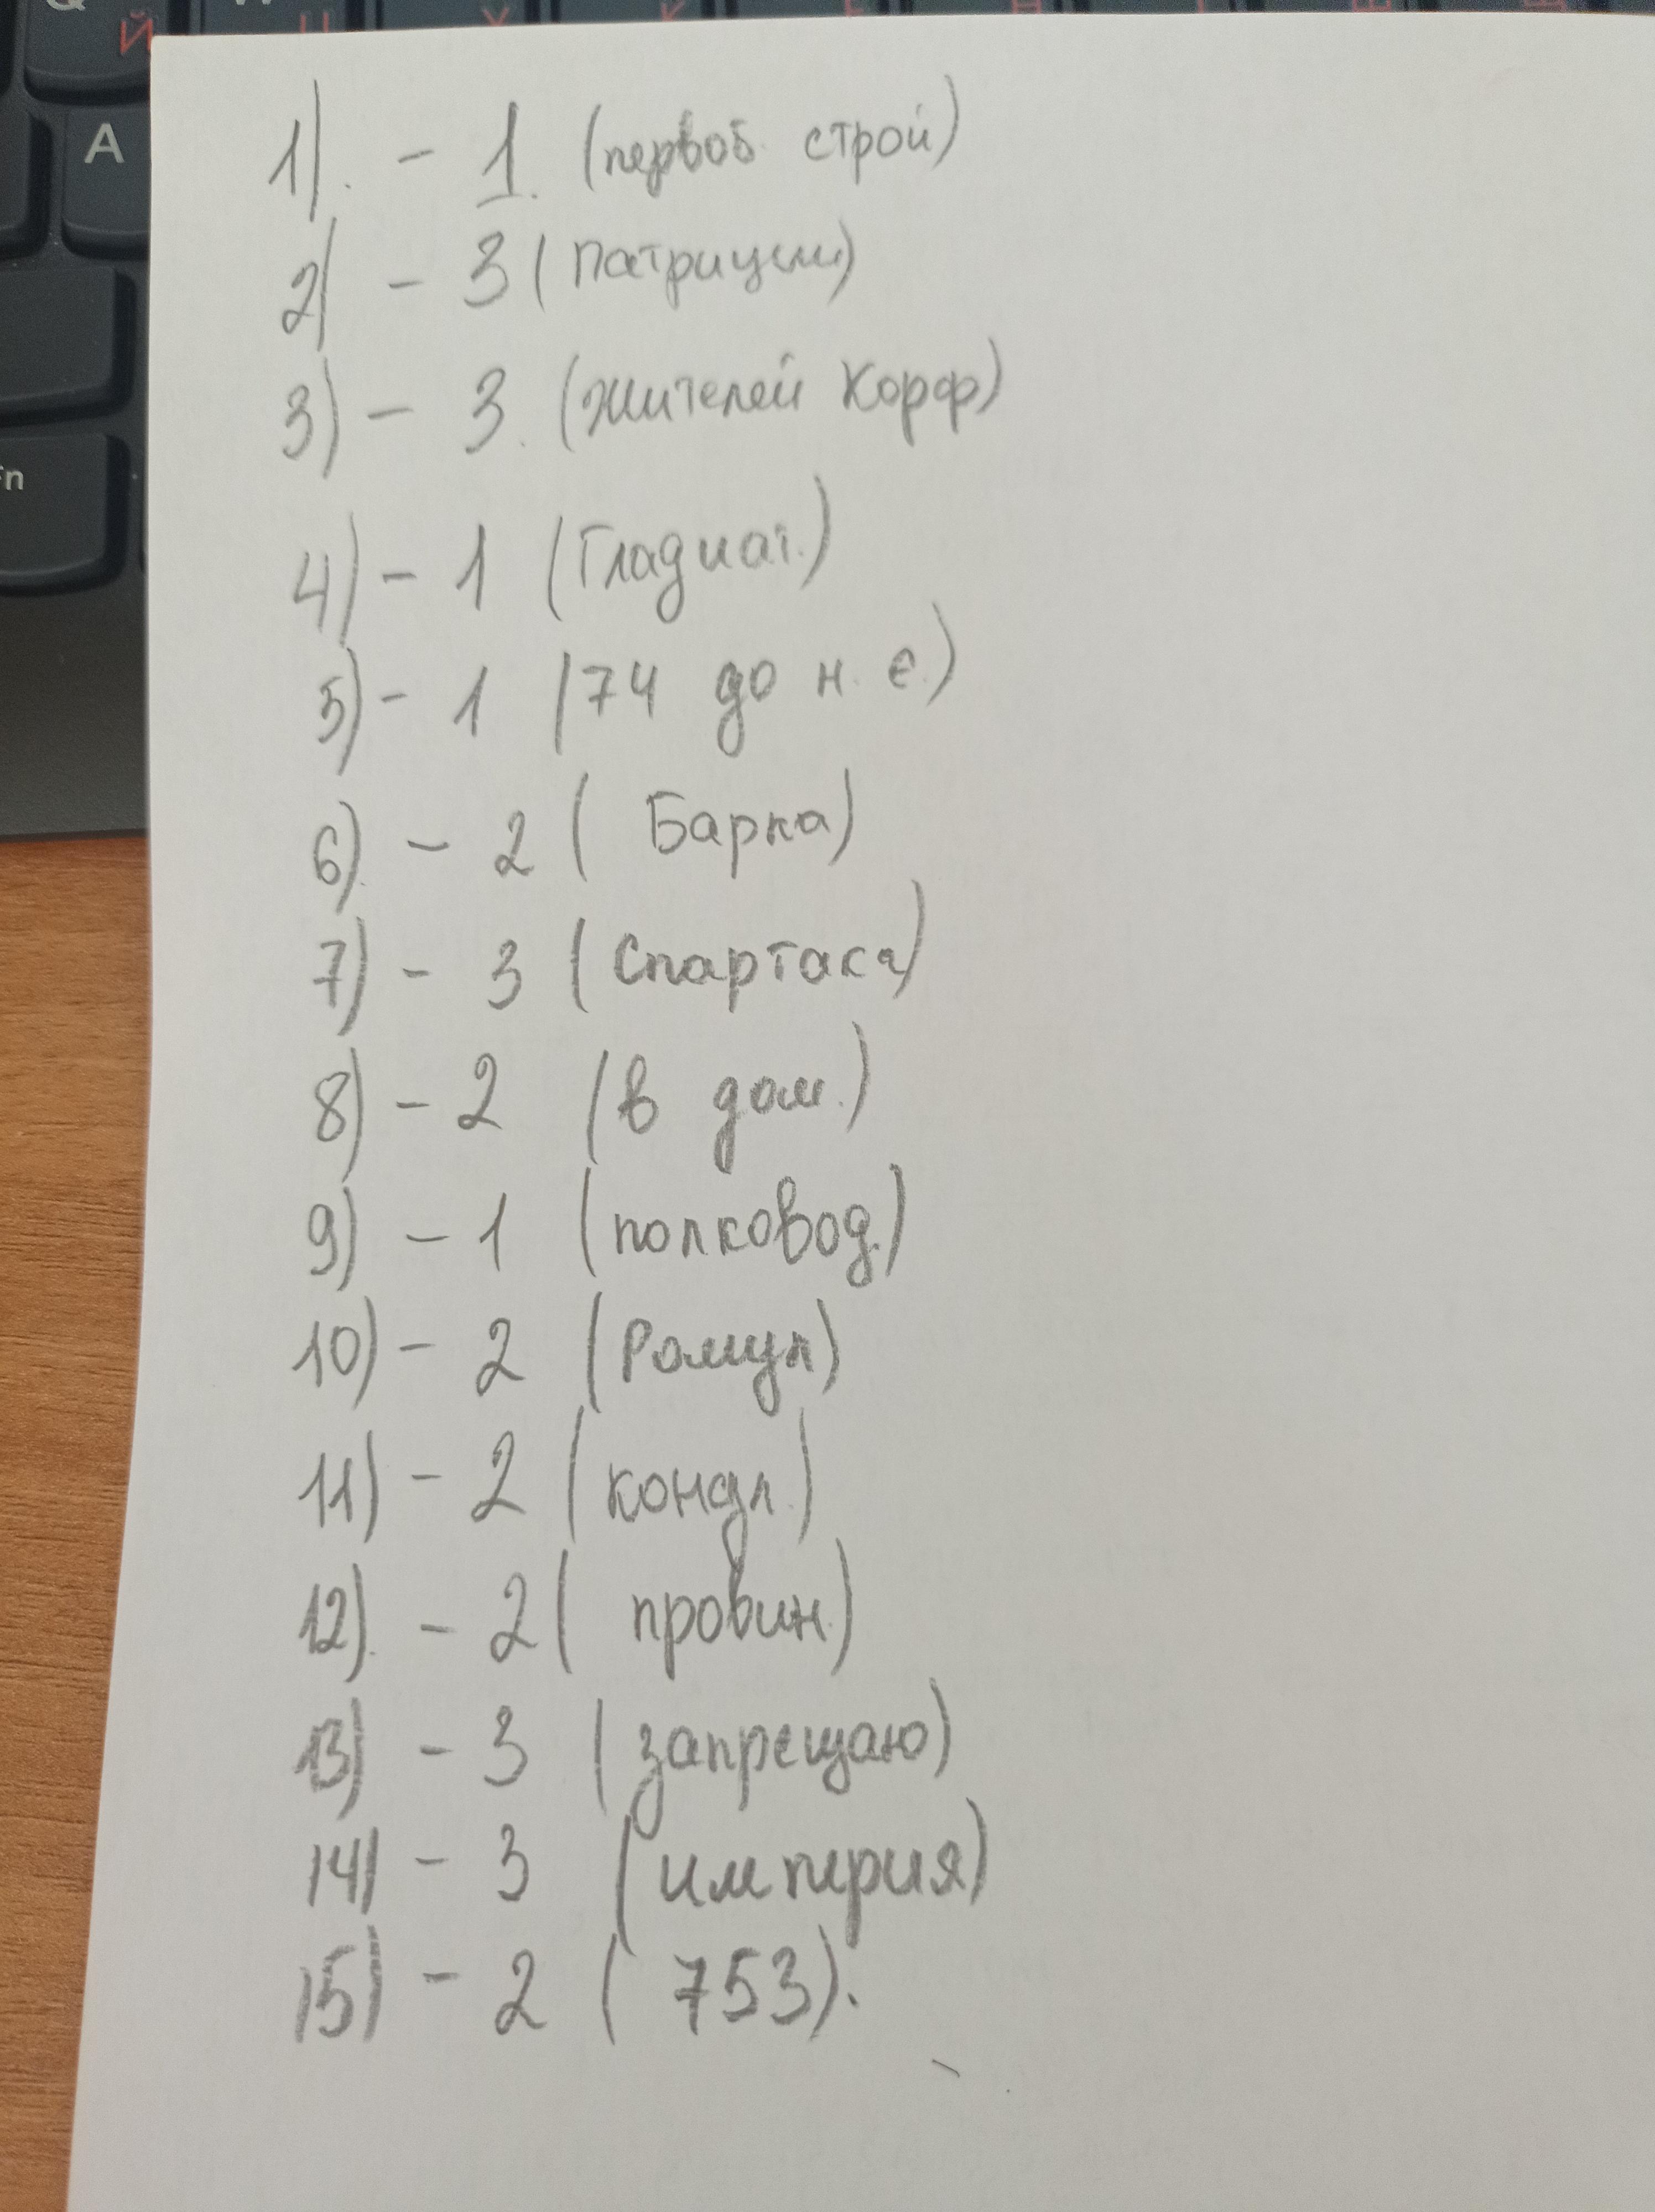 1). - 1. (первоб. строй)
2) - 3 (патриции)
3) - 3. (жителей Карф)
4) - 1 (Гладиат.)
5) - 1 (74 до н. е.)
6). - 2 ( Барка)
7) - 3 (Спартака)
8) - 2 (в дом.)
9) - 1 (полковод.)
10) - 2 (Ромул)
11) - 2 (кондл.)
12). - 2 ( провин.)
13) - 3 (запрещаю)
14) - 3 (империя)
15) - 2 ( 753).
A
Fn
Й